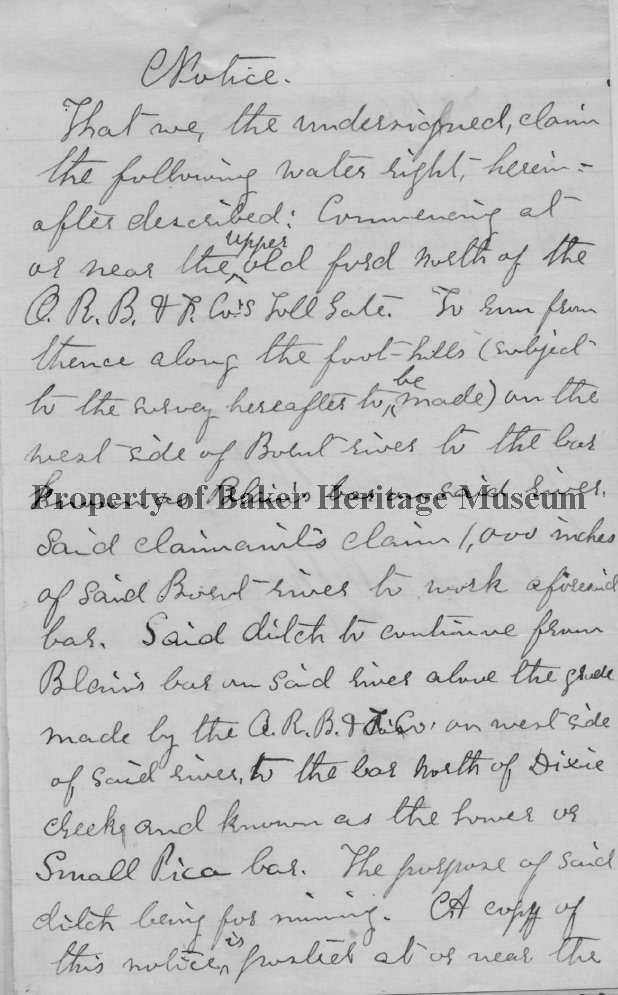 Notice.
That we, the undersigned, claim
the following water right, herein-
after described: Commencing at
or near the upper old ford north of the
O. R. B. & F. Co's Toll Gate. To run from
thence along the foot-hills (subject
to the survey hereafter to be made) on the
west side of Burnt river to the bar
known as Blair's bar on said river.
Property of Baker Heritage Museum
Said claimant's claim 1,000 inches
of said Burnt river to work aforesaid
bar. Said ditch to continue from
Blair's bar on said river above the grade
made by the O. R. B. & Co. on west side
of said river, to the bar north of Dixie
creek, and known as the lower or
Small Pica bar. The purpose of said
ditch being for mining. A copy of
this notice is posted at or near the